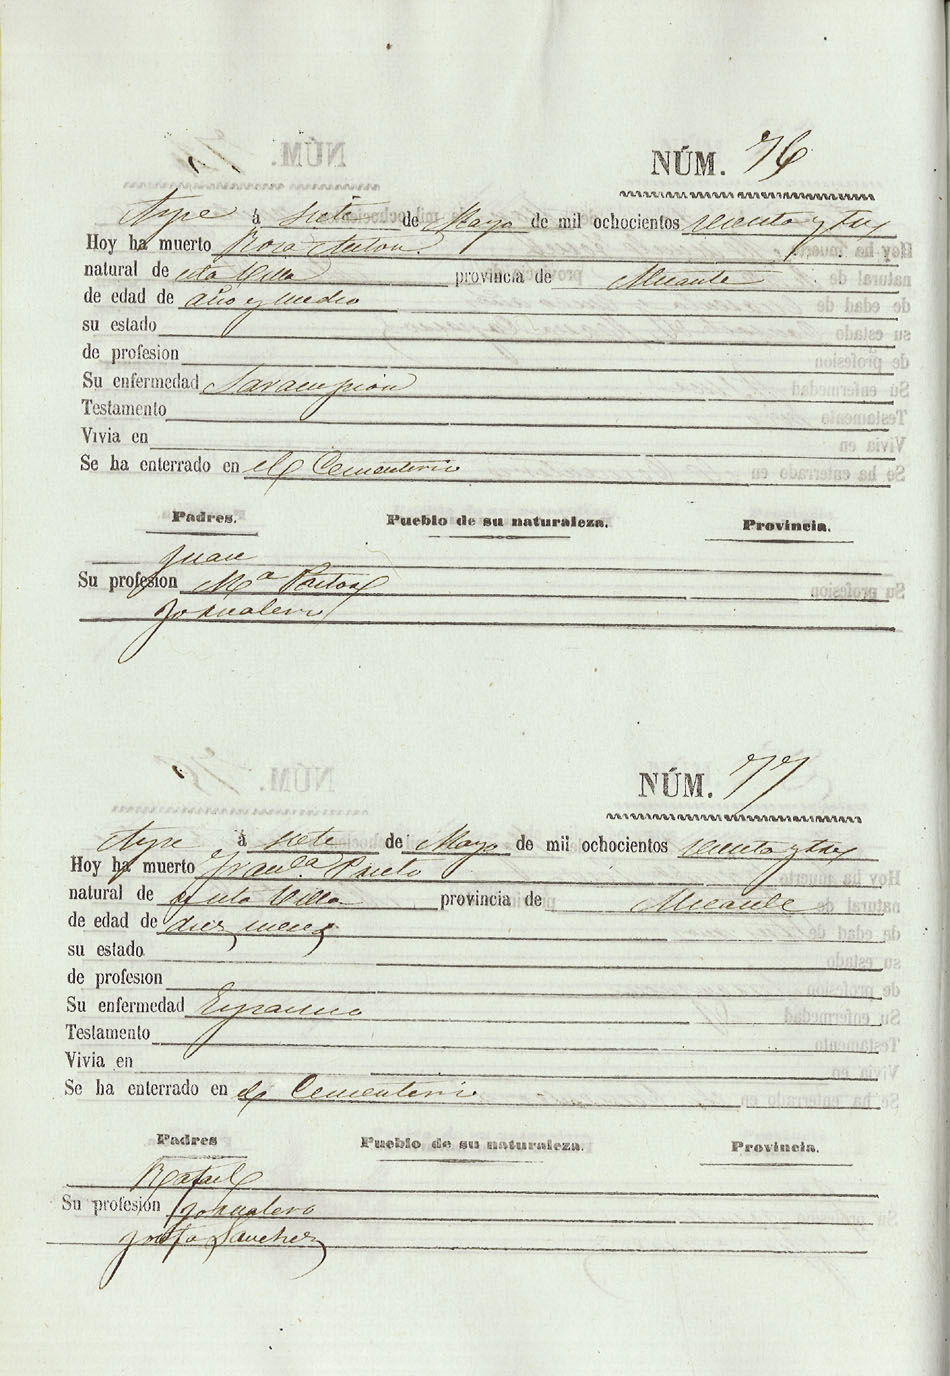 NÚM. 76
Aspe á siete de Mayo de mil ochocientos sesenta y tres
Hoy ha muerto Rosa Anton
natural de esta Villa provincia de Alicante
de edad de año y medio
su estado
de profesion
Su enfermedad Sarampion
Testamento
Vivia en
Se ha enterrado en el Cementerio
Padres. Pueblo de su naturaleza. Provincia.
Juan
Su profesion Mª Pastor
Jornalero
NÚM. 77
Aspe á siete de Mayo de mil ochocientos sesenta y tres
Hoy ha muerto Franca Prieto
natural de esta Villa provincia de Alicante
de edad de diez meses
su estado
de profesion
Su enfermedad
Testamento
Vivia en
Se ha enterrado en el Cementerio
Padres Pueblo de su naturaleza. Provincia.
Rafael
Su profesión Jornalero
Josefa Sanchez